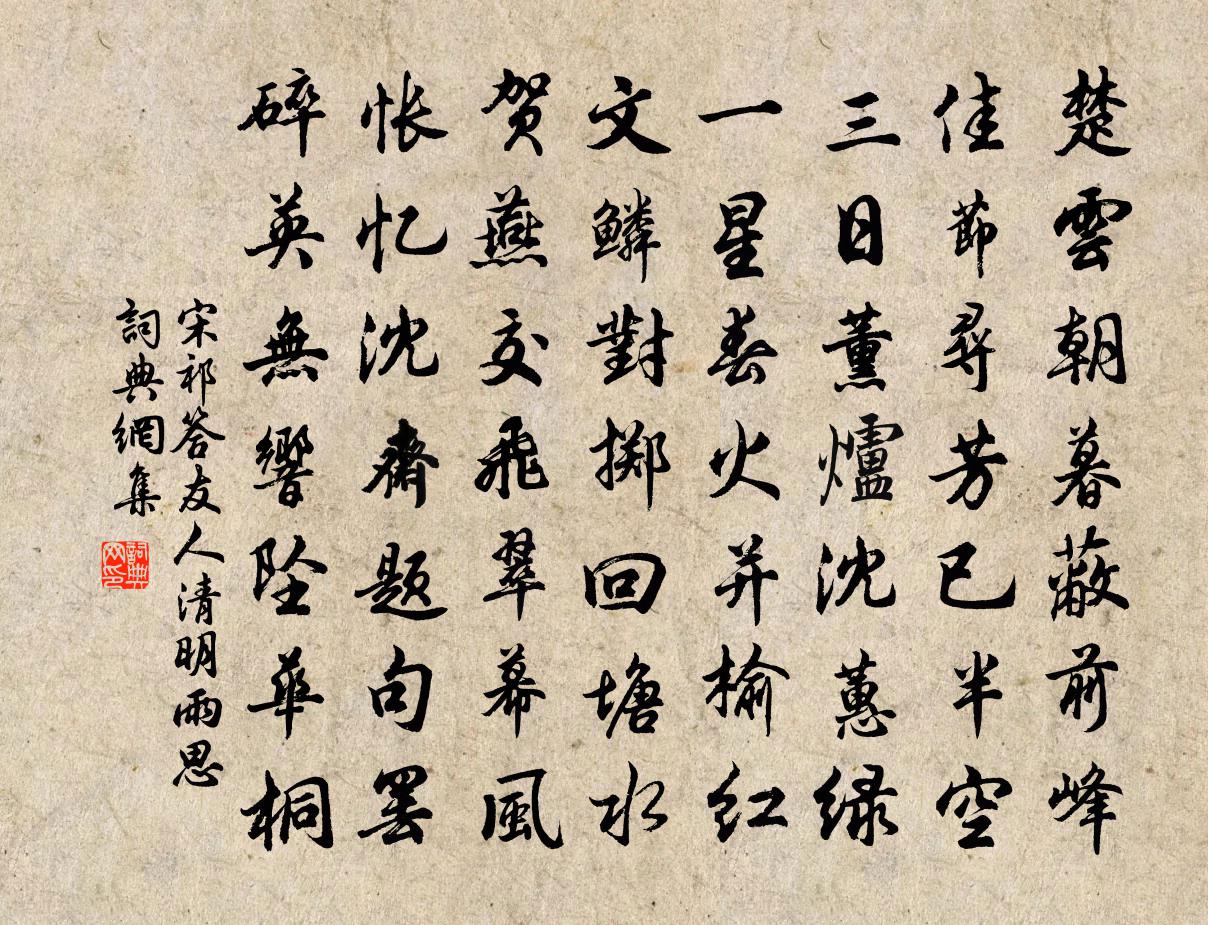 楚雲朝暮蔽前峰
佳節尋芳已半空
三日薰爐沈蕙绿
一星春火并榆红
文鳞對掷回塘水
贺燕交飛翠幕風
怅忆沈齋题句罢
碎英無響坠華桐
宋祁答友人清明雨思
詞典網集
詞典